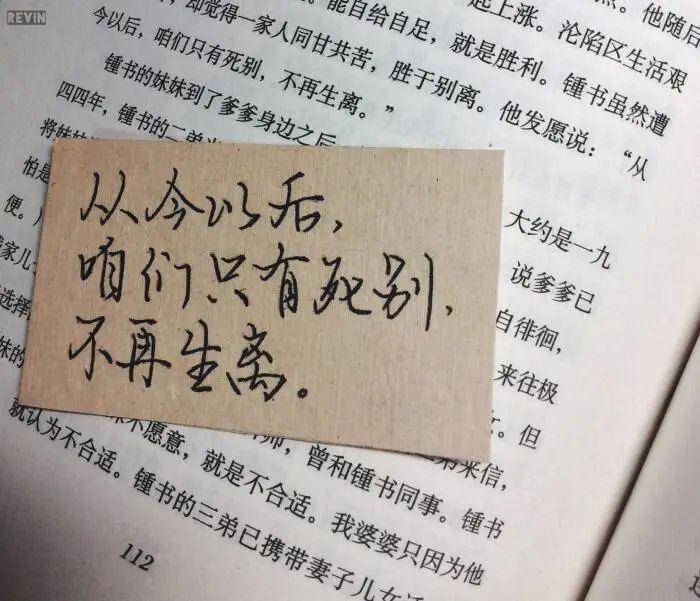 REVIN
起上涨。他随后
却觉得一家人同甘共苦，胜于别离。他发愿说：“从
能自给自足，就是胜利。沦陷区生活艰
锺书虽然遭
今以后，咱们只有死别，不再生离。”
锺书的妹妹到了爹爹身边之后
大约是一九
四四年，锺书的二弟
说爹爹已
将妹妹
自徘徊，
怕是
来往极
便。
但
家儿
选择
妹的
从今以后，
咱们只有死别，
不再生离。
不愿意，就是不合适。
曾和锺书同事。锺书
来信，
就认为不合适。
我婆婆只因为他
锺书的三弟已携带妻子儿女
112